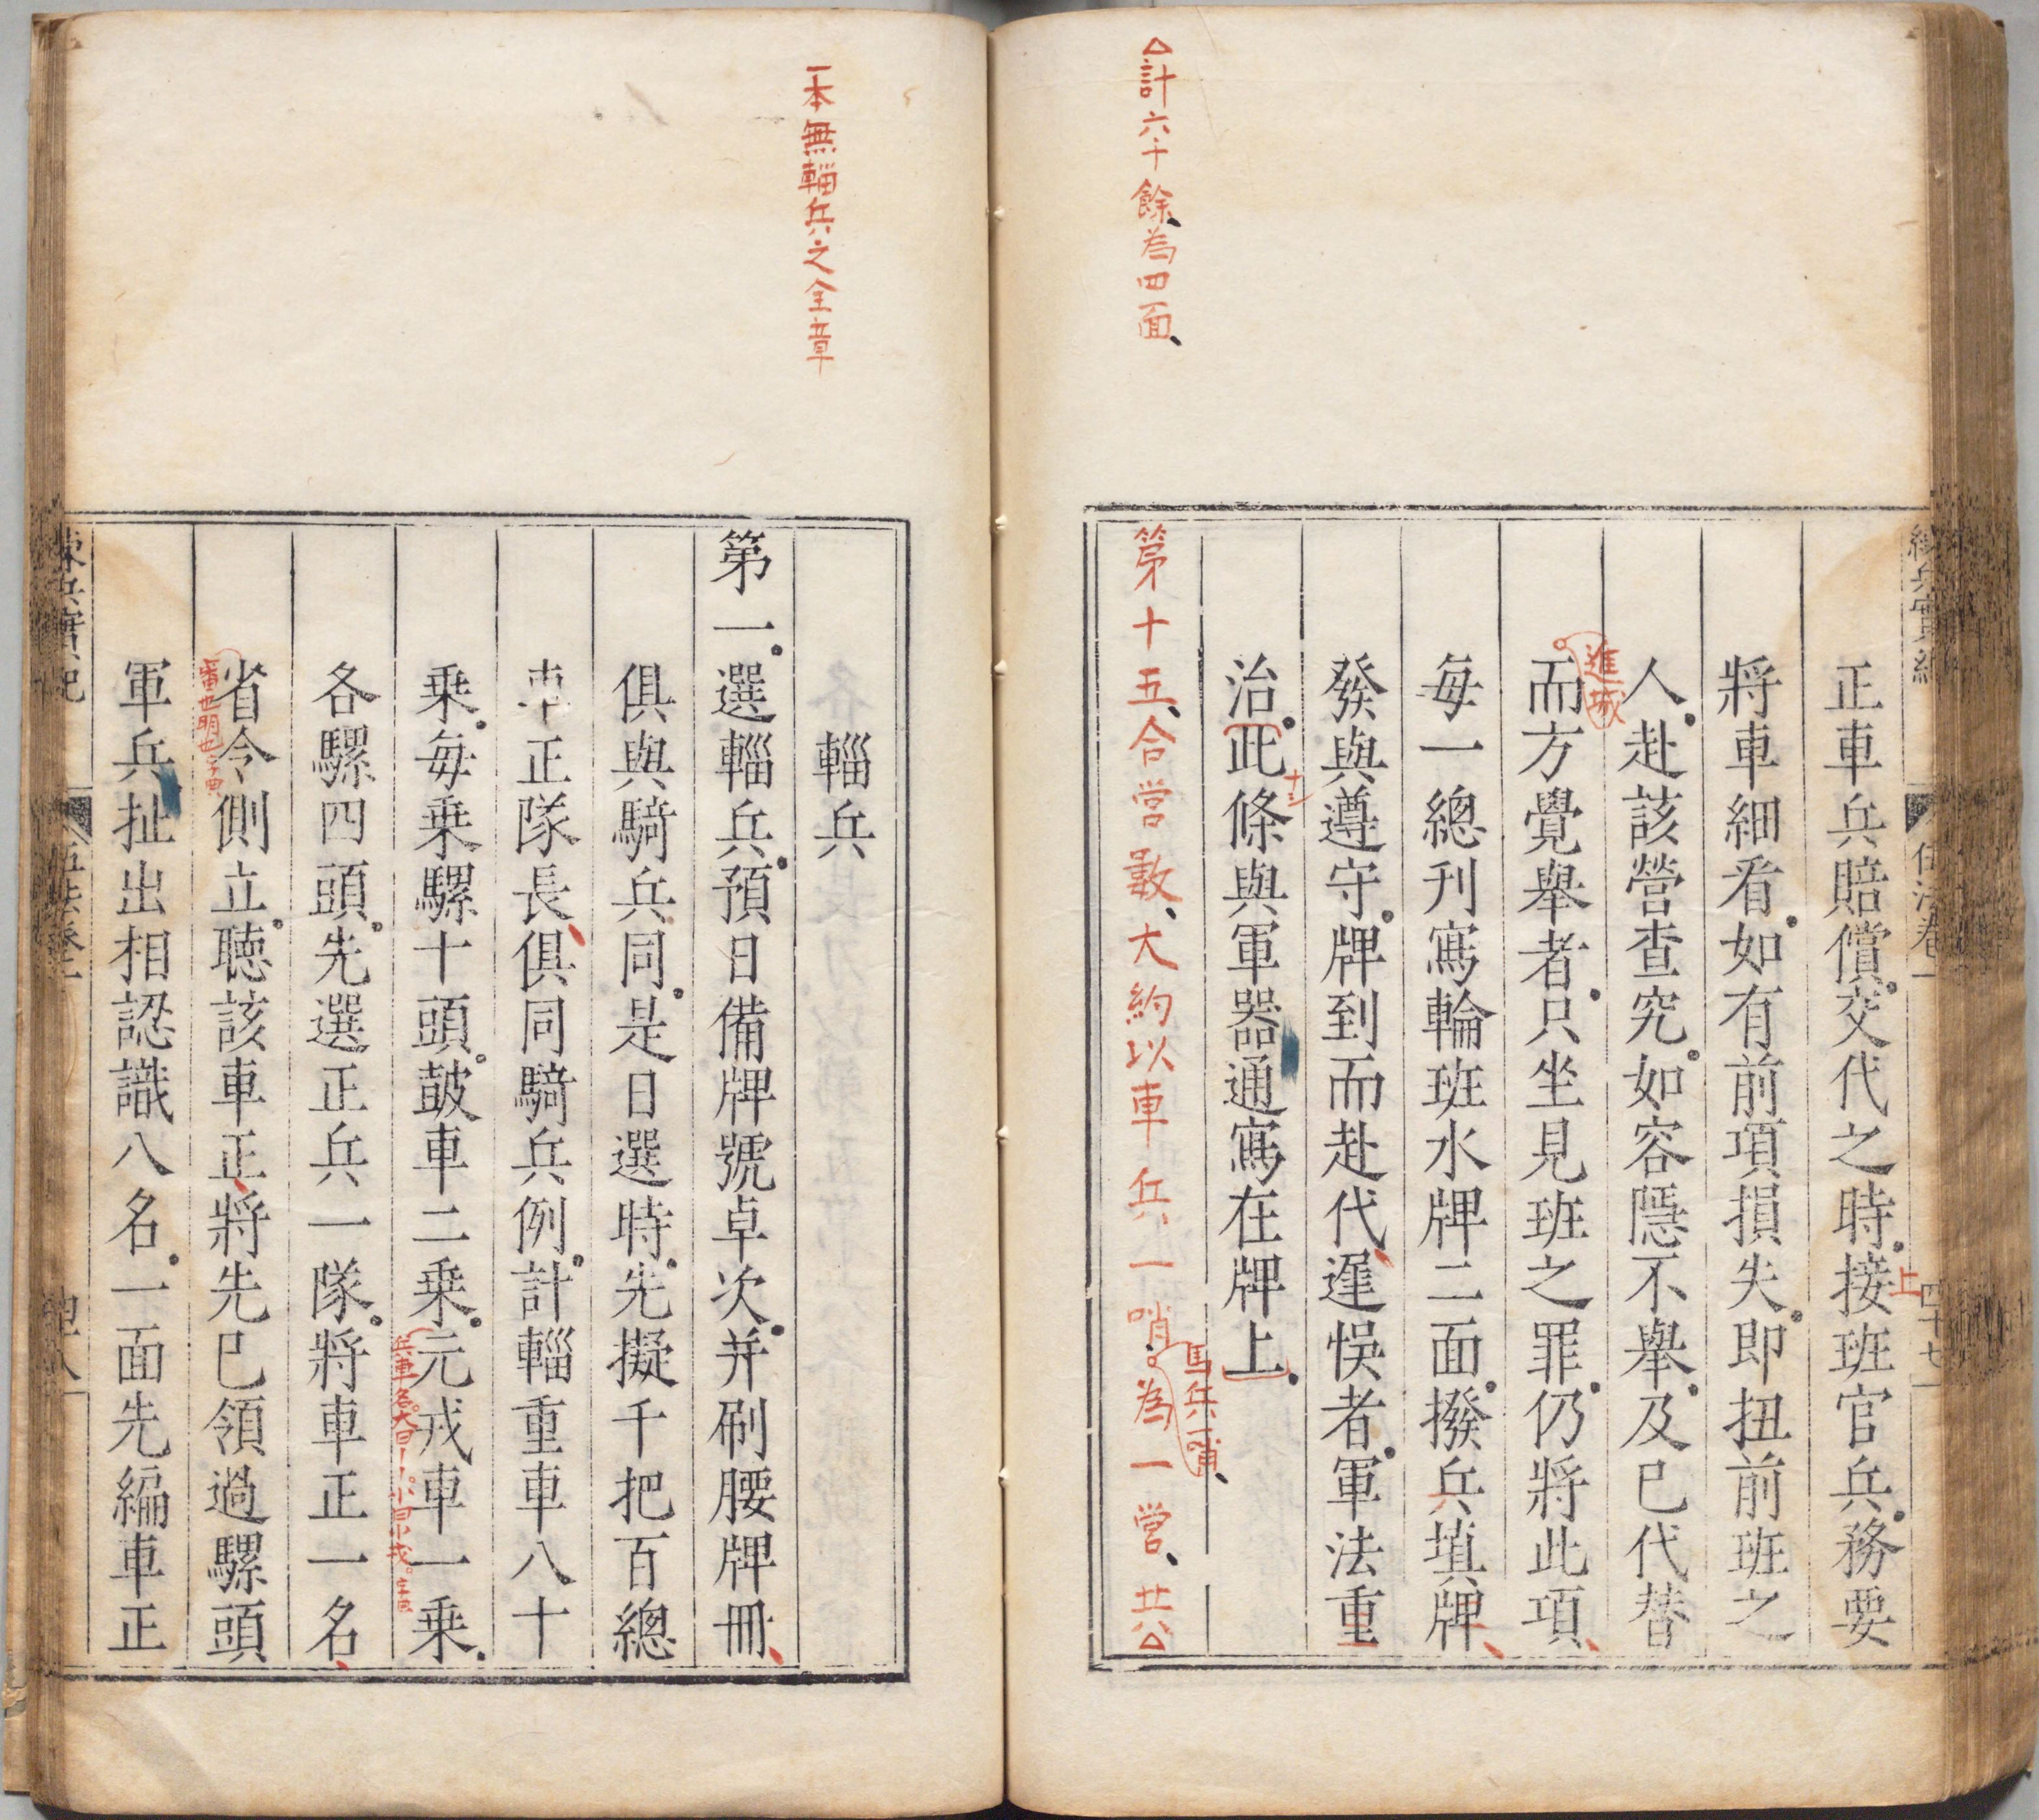 練兵實紀
伍法卷一
四十七
正車兵賠償交代之時接班官兵務要
上
將車細看如有前項損失即扭前班之
人赴該營查究如容隱不舉及已代替
進城
而方覺舉者只坐見班之罪仍將此項
每一總刋寫輪班水牌二面撥兵填牌
發與遵守牌到而赴代遲悞者軍法重
治此條與軍器通寫在牌上
第十五合營數大約以車兵一哨為一營廿八
馬兵一哨
計六十餘為四面
一本無輜兵之全章
輜兵
第一選輜兵預日備牌號卓次并刷腰牌冊
俱與騎兵同是日選時先擬千把百總
車正隊長俱同騎兵例計輜重車八十
乘每乘騾十頭鼓車二乘元戎車一乘
各騾四頭先選正兵一隊將車正一名
省令側立聽該車正將先已領過騾頭
審也明也字典
軍兵扯出相認識八名一面先編車正
練兵實紀
伍法卷一
四十八